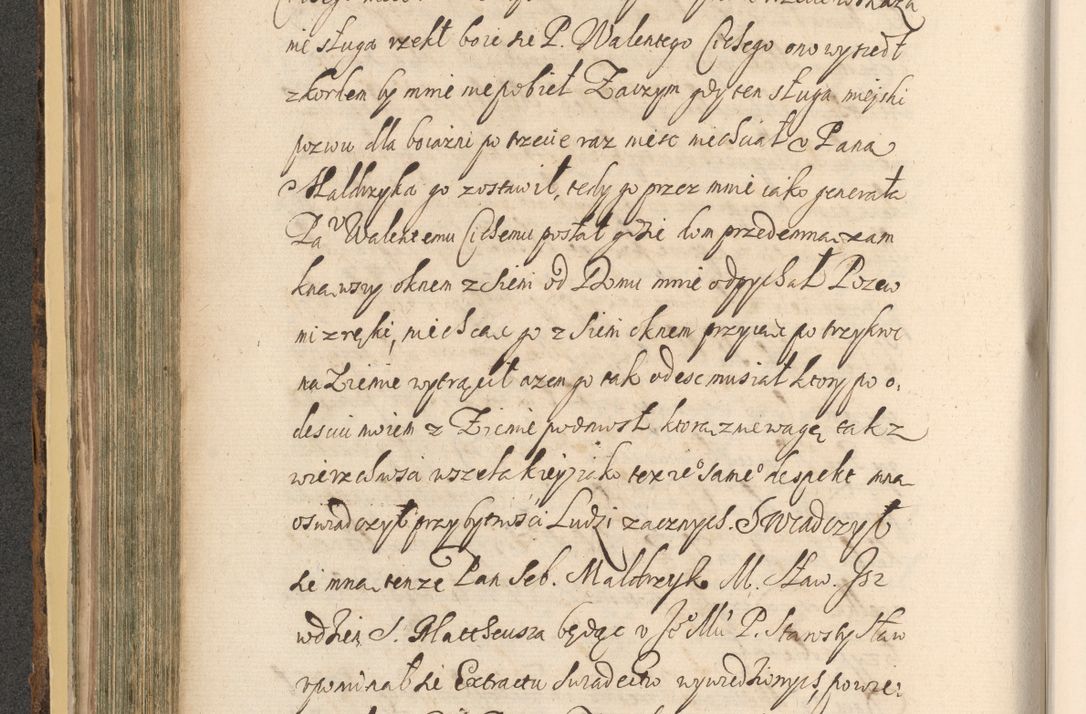 nie sługa rzekł boie sie P. Walentego Cichego ono wyszedł
z kordem by mnie nie pobieł Zaczym gdy ten sługa miejski
pozwu dla boiazni po trzecie raz niesc niechciał v Pana
Maldrzyka go zostawił, tedy go przez mnie iako generała
Pa v Walentemu Cichemu posłał gdzie dom przedemną zam
knąwszy oknem z sieni od Domu mnie odpychał Pozew
mi z ręki, niechcąc go z sieni oknem przyiąc po trzykroc
na Ziemie wytrącił azem go tak odesc musiał ktory po o,
desciu moiem z Ziemie podniosł ktorą zniewagę tak z
wierzchnosci wszelakiey iako tez ie° same° despekt mną
oswiadczył przy bytnosci Ludzi zacznych. Swiadczył
sie mną tenze Pan Seb. Maldrzyk M. Sław. Isz
w dzien S. Mattheusza będąc v Je° Mci P. Starosty Sław
vpominał sie Extractu swiadectw wywiedzionych, powie: